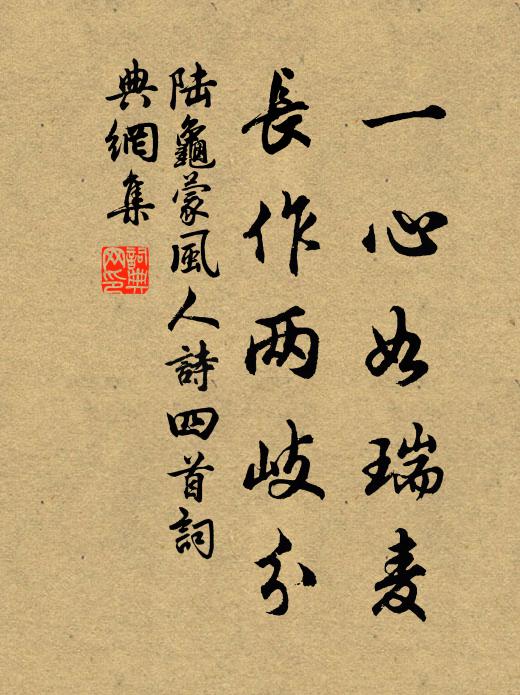 一心如瑞麦
長作两岐分
陆龜蒙風人詩四首詞
典網集
詞典网印